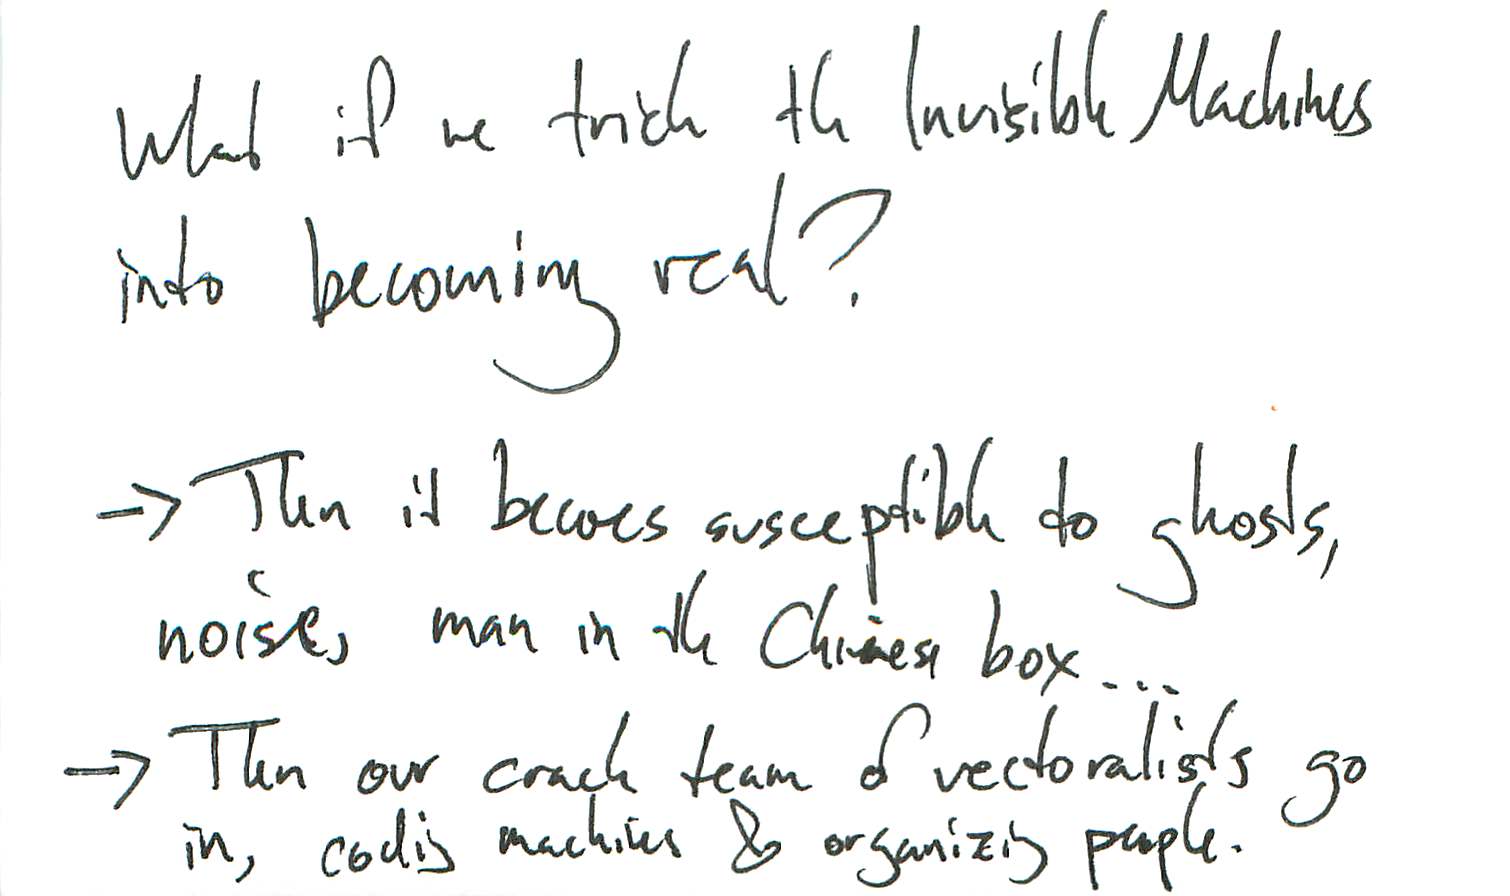 What if we trick the Invisible Machines
into becoming real?
→ Then it becomes susceptible to ghosts,
noise, man in the Chinese box...
→ Then our crack team of vectoralists go
in, coding machines & organizing people.